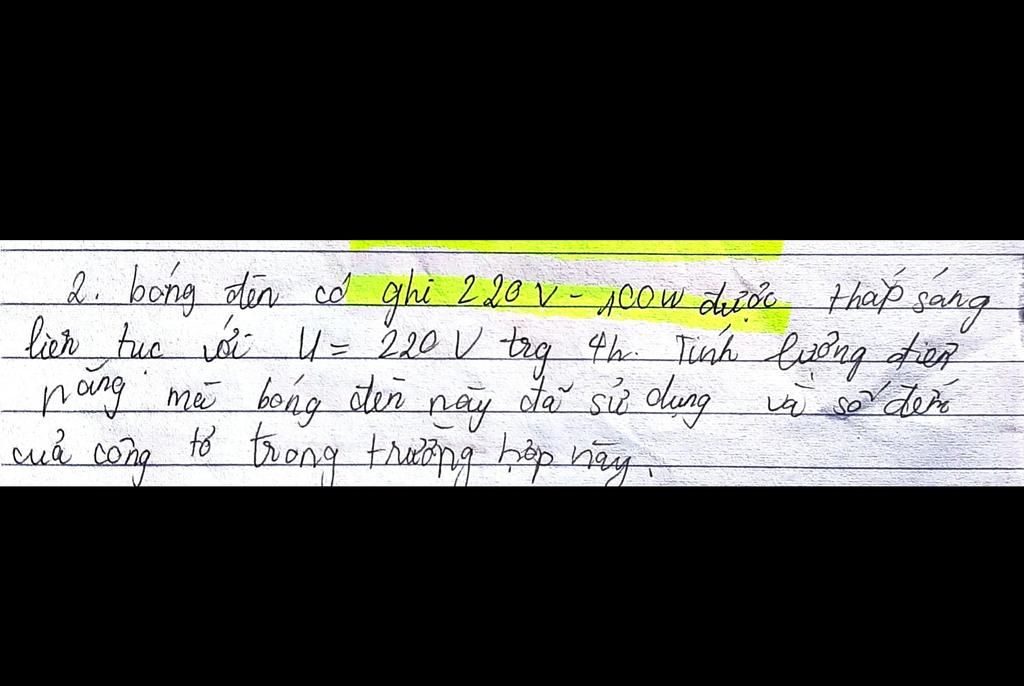 2. bóng đèn có ghi 220V - 100W được thắp sáng
liên tục với U = 220V trg 4h. Tính lượng điện
năng mà bóng đèn này đã sử dụng và số đếm
của công tơ trong trường hợp này.